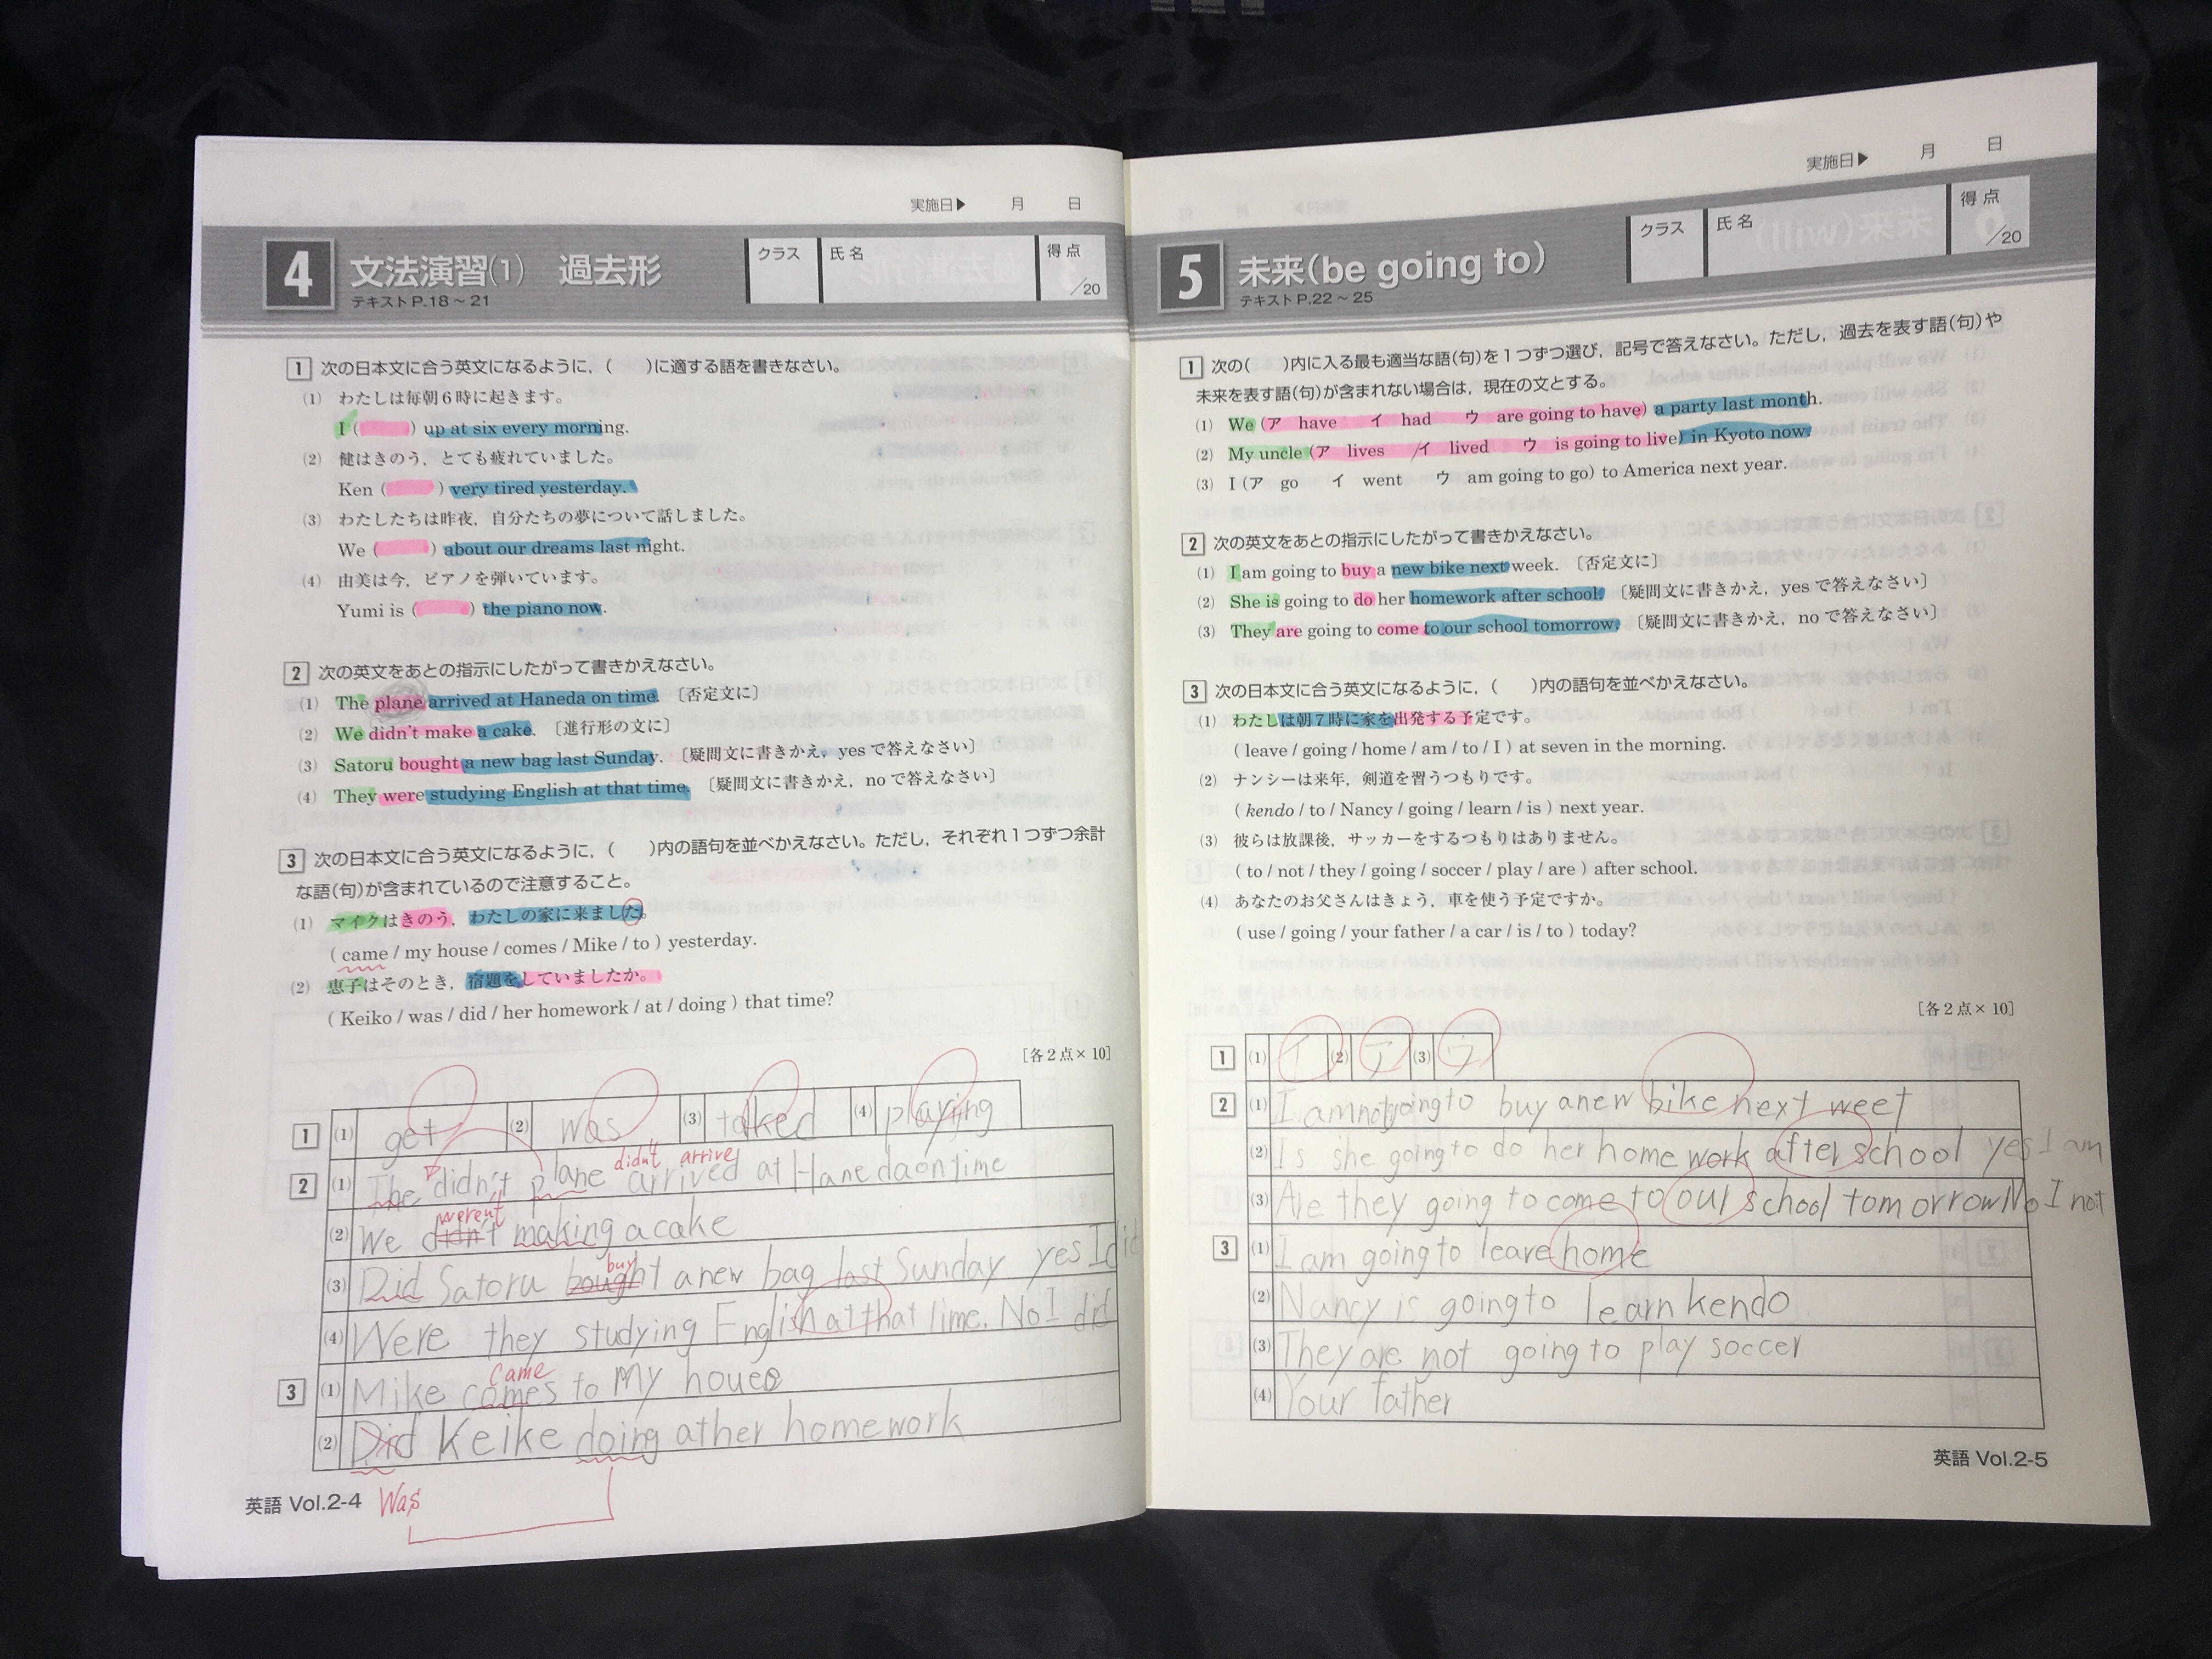 実施日▶ 月 日
4 文法演習(1) 過去形
テキストP.18～21
クラス 氏名 得点 /20
1 次の日本文に合う英文になるように，( )に適する語を書きなさい。
(1) わたしは毎朝6時に起きます。
I ( ) up at six every morning.
(2) 健はきのう，とても疲れていました。
Ken ( ) very tired yesterday.
(3) わたしたちは昨夜，自分たちの夢について話しました。
We ( ) about our dreams last night.
(4) 由美は今，ピアノを弾いています。
Yumi is ( ) the piano now.
2 次の英文をあとの指示にしたがって書きかえなさい。
(1) The plane arrived at Haneda on time. 〔否定文に〕
(2) We didn't make a cake. 〔進行形の文に〕
(3) Satoru bought a new bag last Sunday. 〔疑問文に書きかえ，yesで答えなさい〕
(4) They were studying English at that time. 〔疑問文に書きかえ，noで答えなさい〕
3 次の日本文に合う英文になるように，( )内の語句を並べかえなさい。ただし，それぞれ1つずつ余計
な語(句)が含まれているので注意すること。
(1) マイクはきのう，わたしの家に来ました。
( came / my house / comes / Mike / to ) yesterday.
(2) 恵子はそのとき，宿題をしていましたか。
( Keiko / was / did / her homework / at / doing ) that time?
[各2点×10]
1 (1) get (2) was (3) talked (4) playing
didn't arrive
2 (1) The didn't plane arrived at Haneda on time
weren't
(2) We didn't making a cake
buy
(3) Did Satoru bought a new bag last Sunday yes I did
(4) Were they studying English at that time. No I did
came
3 (1) Mike comes to my houes
(2) Did Keike doing at her homework
英語 Vol.2-4 Was
実施日▶ 月 日
5 未来(be going to)
テキストP.22～25
クラス 氏名 得点 /20
1 次の( )内に入る最も適当な語(句)を1つずつ選び，記号で答えなさい。ただし，過去を表す語(句)や
未来を表す語(句)が含まれない場合は，現在の文とする。
(1) We (ア have イ had ウ are going to have) a party last month.
(2) My uncle (ア lives イ lived ウ is going to live) in Kyoto now.
(3) I (ア go イ went ウ am going to go) to America next year.
2 次の英文をあとの指示にしたがって書きかえなさい。
(1) I am going to buy a new bike next week. 〔否定文に〕
(2) She is going to do her homework after school. 〔疑問文に書きかえ，yesで答えなさい〕
(3) They are going to come to our school tomorrow. 〔疑問文に書きかえ，noで答えなさい〕
3 次の日本文に合う英文になるように，( )内の語句を並べかえなさい。
(1) わたしは朝7時に家を出発する予定です。
( leave / going / home / am / to / I ) at seven in the morning.
(2) ナンシーは来年，剣道を習うつもりです。
( kendo / to / Nancy / going / learn / is ) next year.
(3) 彼らは放課後，サッカーをするつもりはありません。
( to / not / they / going / soccer / play / are ) after school.
(4) あなたのお父さんはきょう，車を使う予定ですか。
( use / going / your father / a car / is / to ) today?
[各2点×10]
1 (1) イ (2) ア (3) ウ
2 (1) I am not going to buy a new bike next weet
(2) Is she going to do her home work after school yes I am
(3) Are they going to come to our school tomorrow No I not
3 (1) I am going to leave home
(2) Nancy is going to learn kendo
(3) They are not going to play soccer
(4) Your father
英語 Vol.2-5